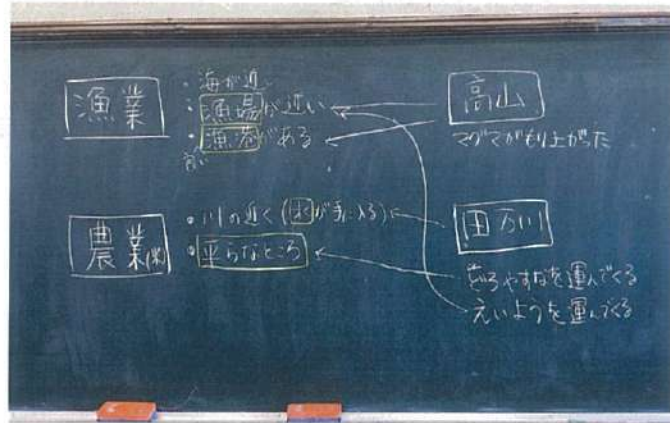 漁業
・海が近い
・漁場が近い
・漁港がある
高山
マグマがもり上がった
農業(米)
・川の近く(水が手に入る)
・平らなところ
田万川
どろやすなを運んでくる
えいようを運んでくる